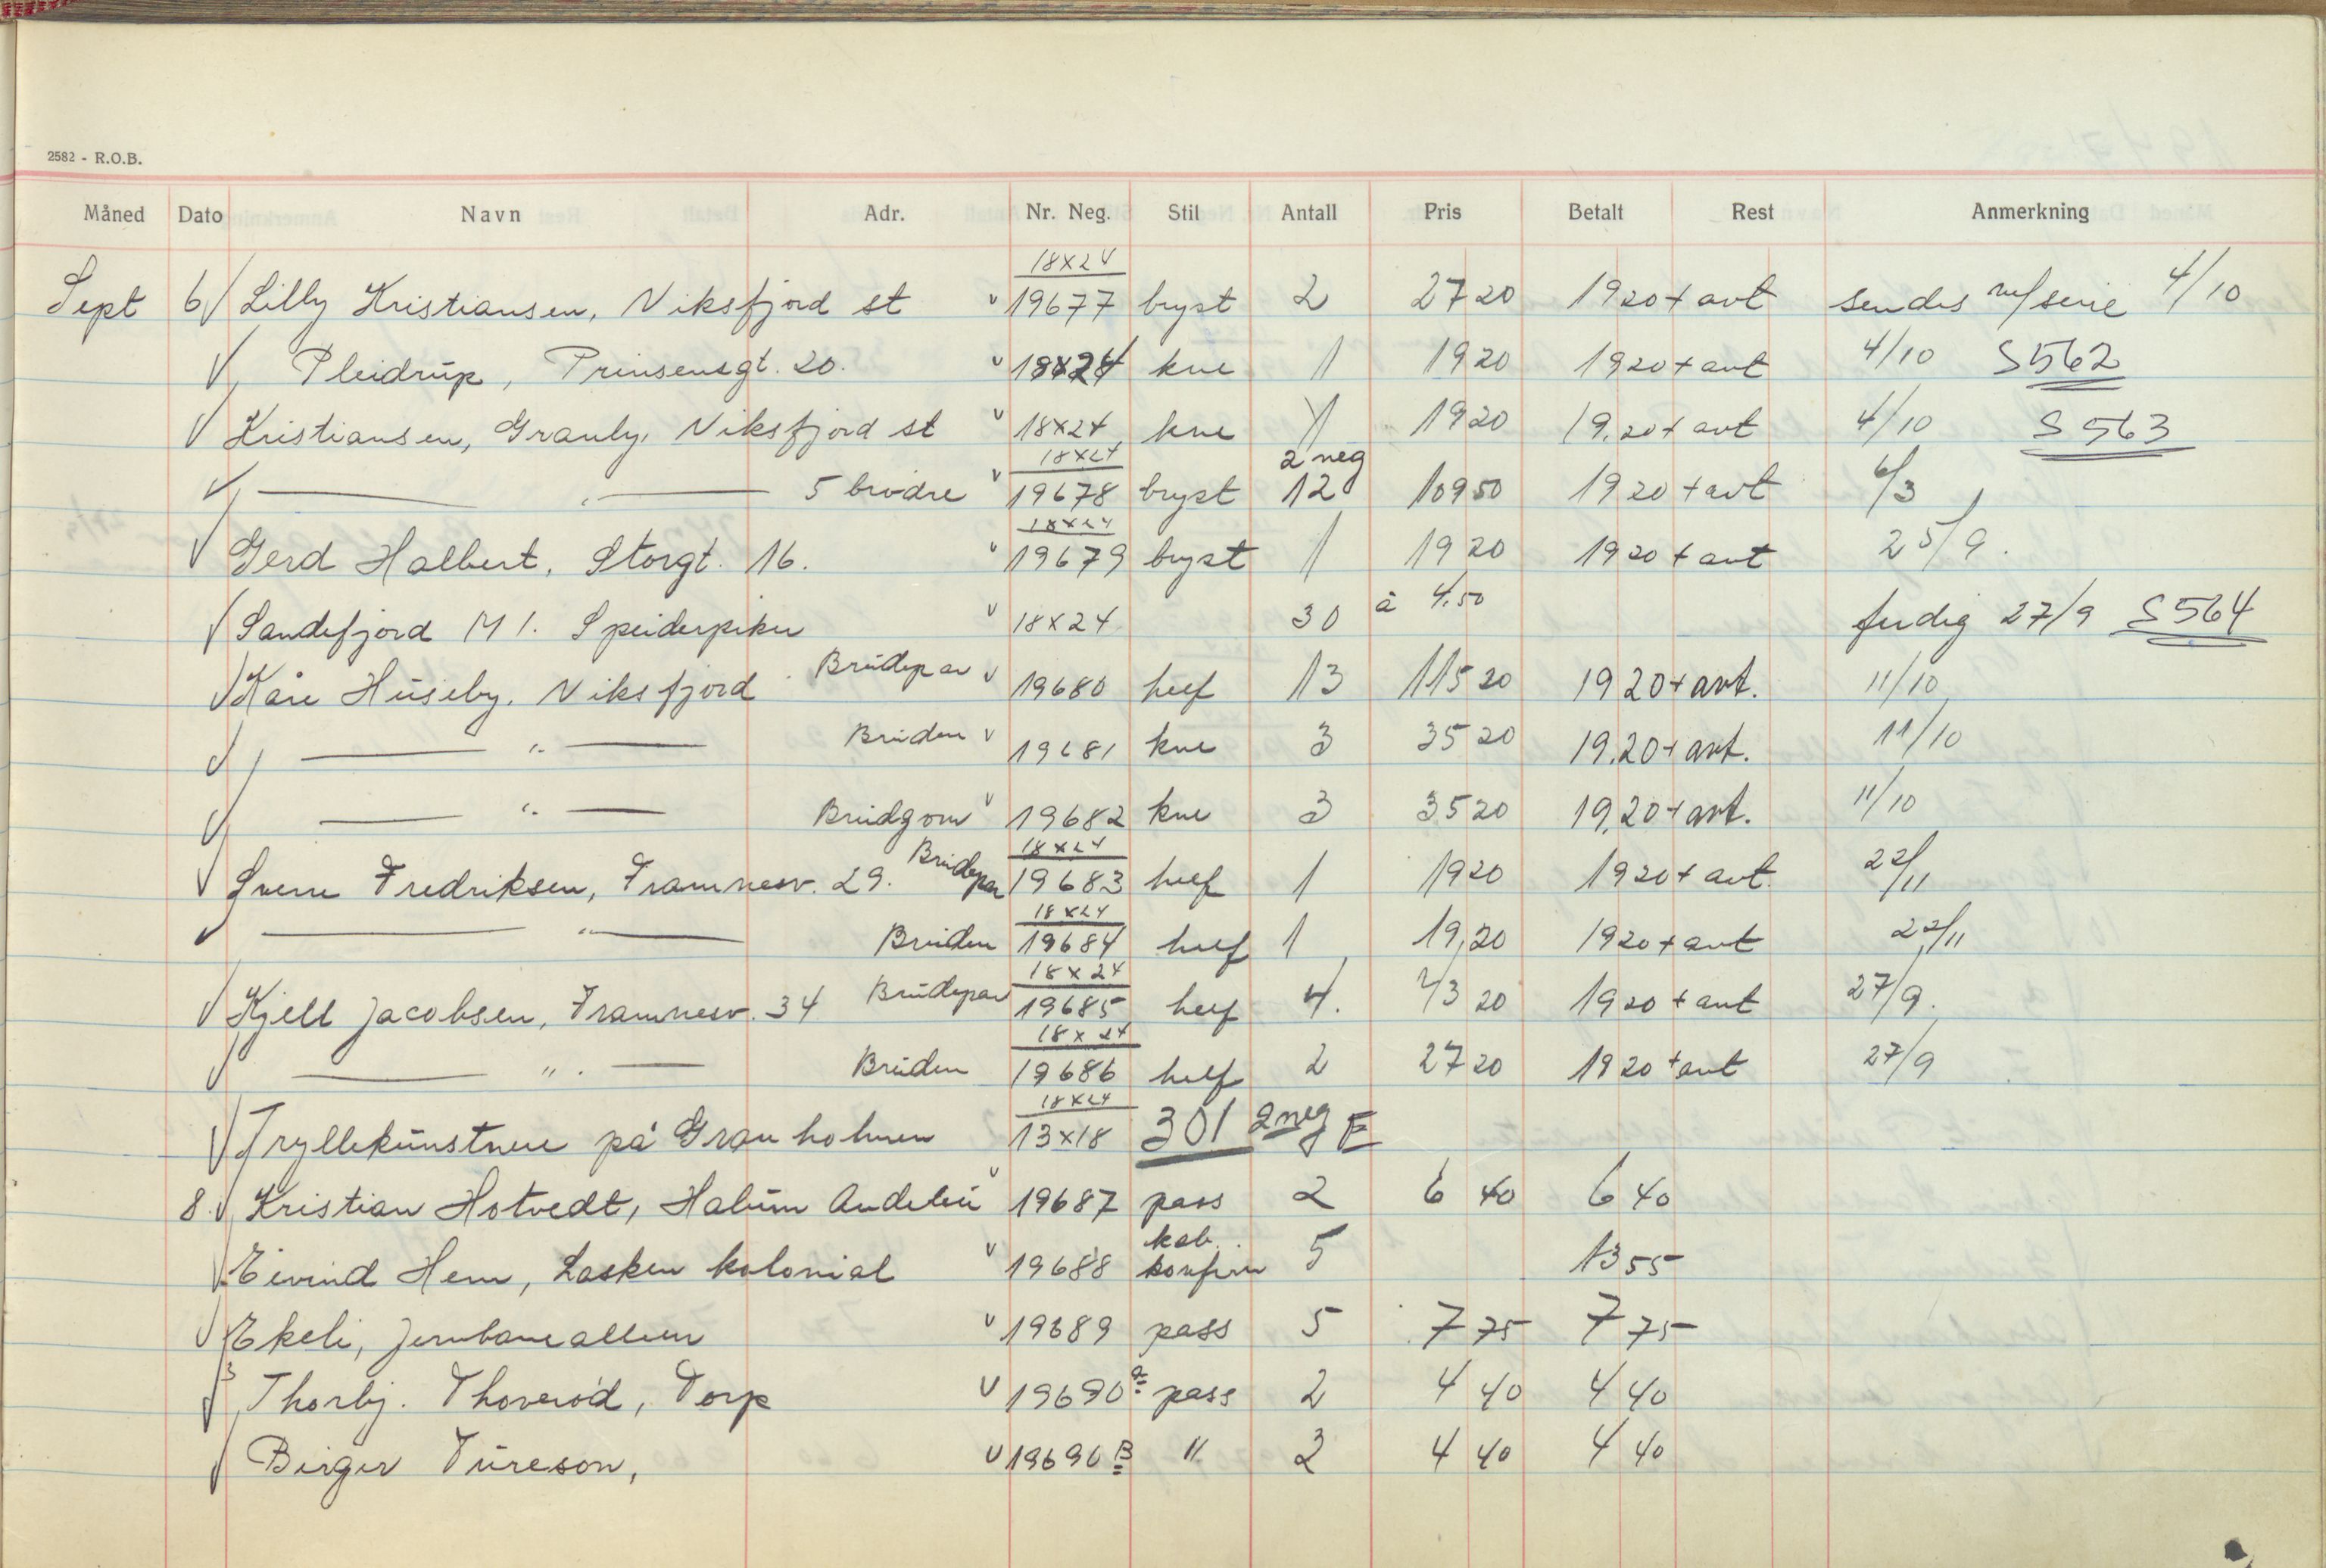 2582 - R.O.B.
Måned Dato Navn Adr. Nr. Neg. Stil Antall Pris Betalt Rest Anmerkning
18x24
Sept 6 Lilly Kristiansen, Viksfjord st 19677 bryst 2 27 20 19 20 + avt sendes m/serie 4/10
Pleidrup, Prinsensgt. 20. 18x24 kne 1 19 20 19 20 + avt 4/10 S 562
Kristiansen, Granly, Viksfjord st 18x24 kne 1 19 20 19.20 + avt 4/10 S 563
18x24 2 neg
" 5 brødre 19678 bryst 12 109 50 19 20 + avt 6/3
18x24
Gerd Halbert, Storgt. 16. 19679 bryst 1 19 20 19 20 + avt 25/9.
Sandefjord M 1. Speiderpiker 18x24 30 à 4.50 ferdig 27/9 S 564
Kåre Huseby, Viksfjord Brudepar 19680 helf 13 115 20 19 20 + avt. 11/10
" Bruden 19681 kne 3 35 20 19.20 + avt. 11/10
" Brudgom 19682 kne 3 35 20 19.20 + avt. 11/10
18x24
Sverre Fredriksen, Framnesv. 29. Brudepar 19683 helf 1 19 20 19 20 + avt. 22/11
18x24
" Bruden 19684 helf 1 19,20 19 20 + avt 22/11
18x24
Kjell Jacobsen, Framnesv. 34 Brudepar 19685 helf 4. 43 20 19 20 + avt 27/9.
18x24
" Bruden 19686 helf 2 27 20 19 20 + avt 27/9
18x24
Tryllekunstnere på Granholmen 13x18 301 2 neg E
8. Kristian Hotvedt, Haslum Andebu 19687 pass 2 6 40 6 40
kab.
Eivind Hem, Lasken kolonial 19688 konfirm 5 13 55
Ekeli, Jernbanealleen 19689 pass 5 7 75 7 75
Thorbj. Thoverød, Torp 19690 a pass 2 4 40 4 40
Birger Tureson, 19690 B " 2 4 40 4 40